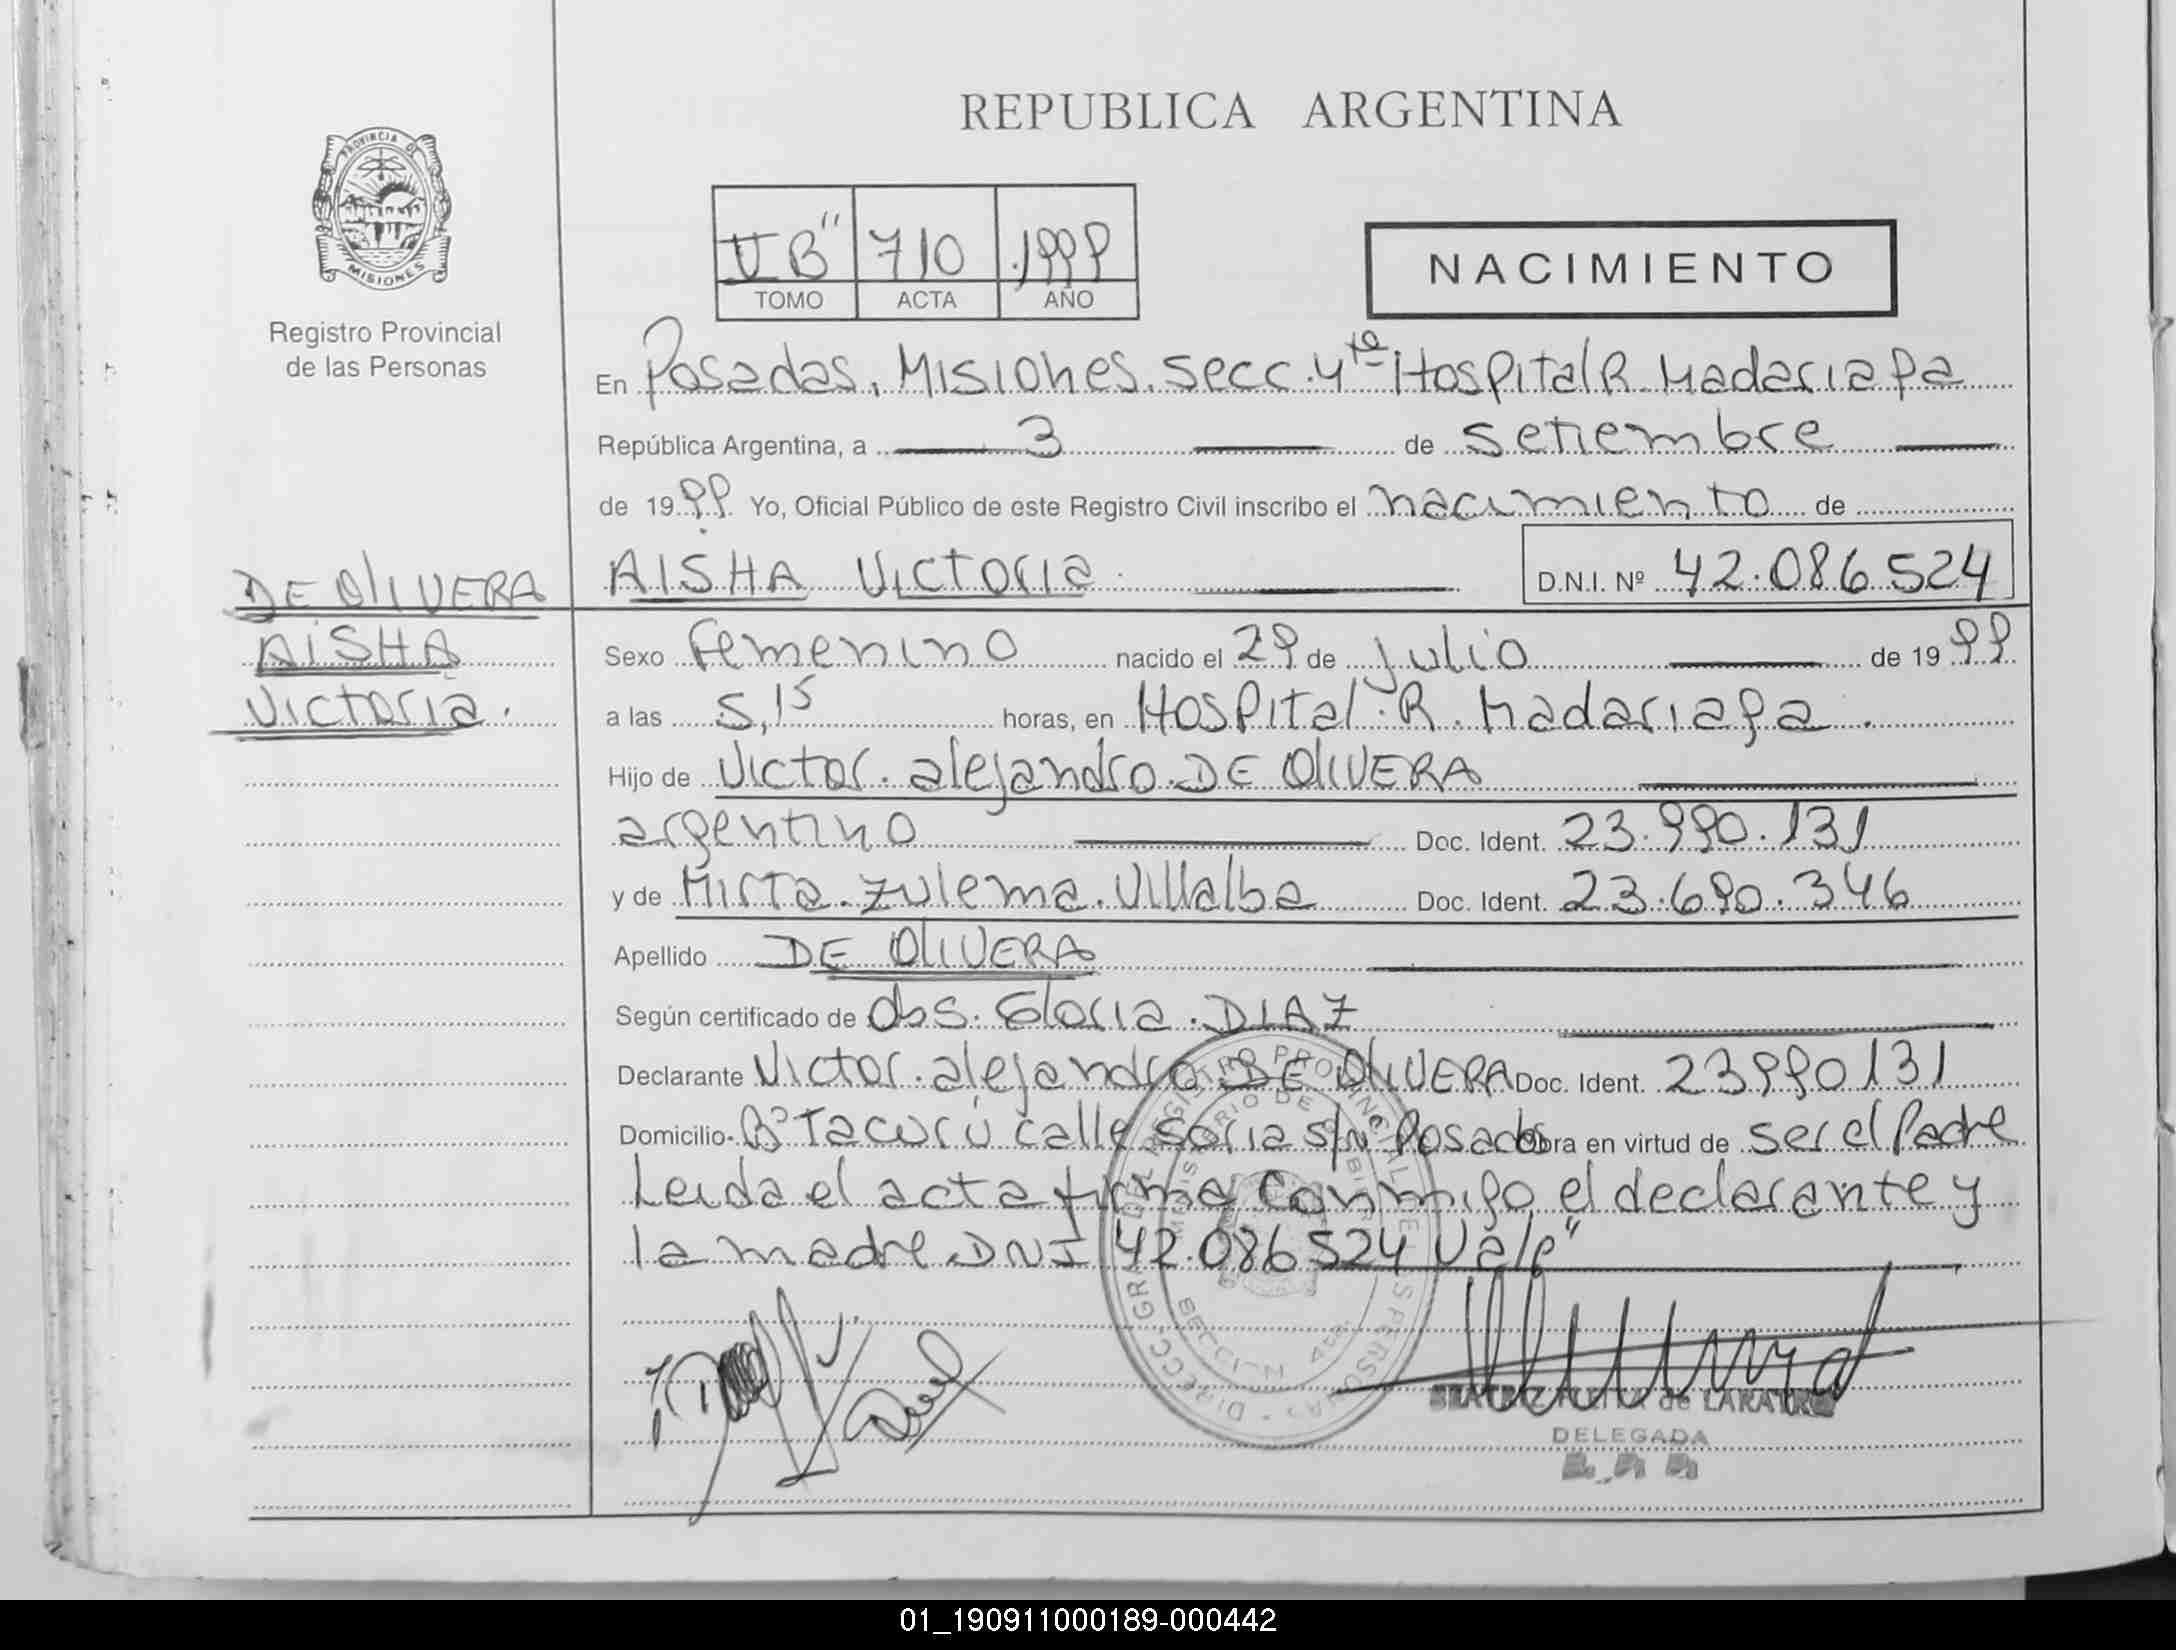 REPUBLICA ARGENTINA
PROVINCIA DE
MISIONES
Registro Provincial
de las Personas
II B" 710 1999
TOMO ACTA AÑO
NACIMIENTO
En Posadas, Misiones. Secc. 4ta Hospital R. Madariaga
República Argentina, a 3 de setiembre
de 1999 Yo, Oficial Público de este Registro Civil inscribo el nacimiento de
AISHA Victoria. D.N.I. Nº 42.086.524
DE OLIVERA
AISHA
Victoria.
Sexo Femenino nacido el 29 de julio de 1999
a las 5,15 horas, en Hospital R. Madariaga.
Hijo de Victor. alejandro. DE OLIVERA
argentino Doc. Ident. 23.990.131
y de Mirta. Zulema. Villalba Doc. Ident. 23.690.346
Apellido DE OLIVERA
Según certificado de Obs. Gloria. DIAZ
Declarante Victor. alejandro DE OLIVERA Doc. Ident. 23990131
Domicilio Bº Tacurú calle Soria s/nº Posadas Obra en virtud de ser el Padre
Leida el acta firma conmigo el declarante y
la madre. DNI 42.086524 Vale"
DIRECC. GRAL. DEL REGISTRO PROVINCIAL DE LAS PERSONAS
MINISTERIO DE GOBIERNO
SECCION 4ta.
BEATRIZ de
DELEGADA
01_190911000189-000442